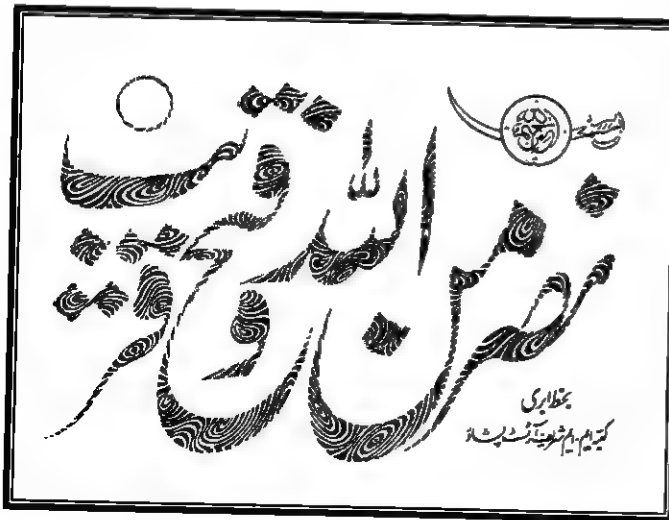 نصر من الله و فتح قریب
بخط ابری
کتبہ ایم۔ایم شریف آرٹسٹ پشاور